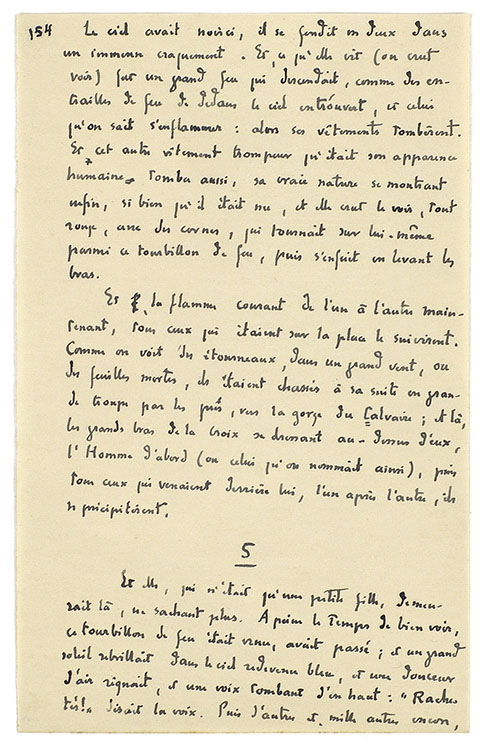 154
Le ciel avait noirci, il se fendit en deux dans
un immense craquement. Et, ce qu'elle vit (ou crut
voir) fut un grand feu qui descendait, comme des en-
trailles de feu de dedans le ciel entr'ouvert, et celui
qu'on sait s'enflammer : alors ses vêtements tombèrent.
Et cet autre vêtement trompeur qu'était son apparence
humaine tomba aussi, sa vraie nature se montrant
enfin, si bien qu'il était nu, et elle crut le voir, tout
rouge, avec des cornes, qui tournait sur lui-même
parmi ce tourbillon de feu, puis s'enfuit en levant les
bras.
Et la flamme courant de l'un à l'autre main-
tenant, tous ceux qui étaient sur la place le suivirent.
Comme on voit des étourneaux, dans un grand vent, ou
des feuilles mortes, ils étaient chassés à sa suite en gran-
de troupe par les prés, vers la gorge du Calvaire ; et là,
les grands bras de la croix se dressant au-dessus d'eux,
l'Homme d'abord (ou celui qu'on nommait ainsi), puis
tous ceux qui venaient derrière lui, l'un après l'autre, ils
se précipitèrent.
5
Et elle, qui n'était qu'une petite fille, demeu-
rait là, ne sachant plus. A peine le temps de bien voir,
ce tourbillon de feu était venu, avait passé ; et un grand
soleil rebrillait dans le ciel redevenu bleu, et une douceur
d'air régnait, et une voix tombant d'en haut : "Rache-
tés!" disait la voix. Puis d'autres et mille autres encore,